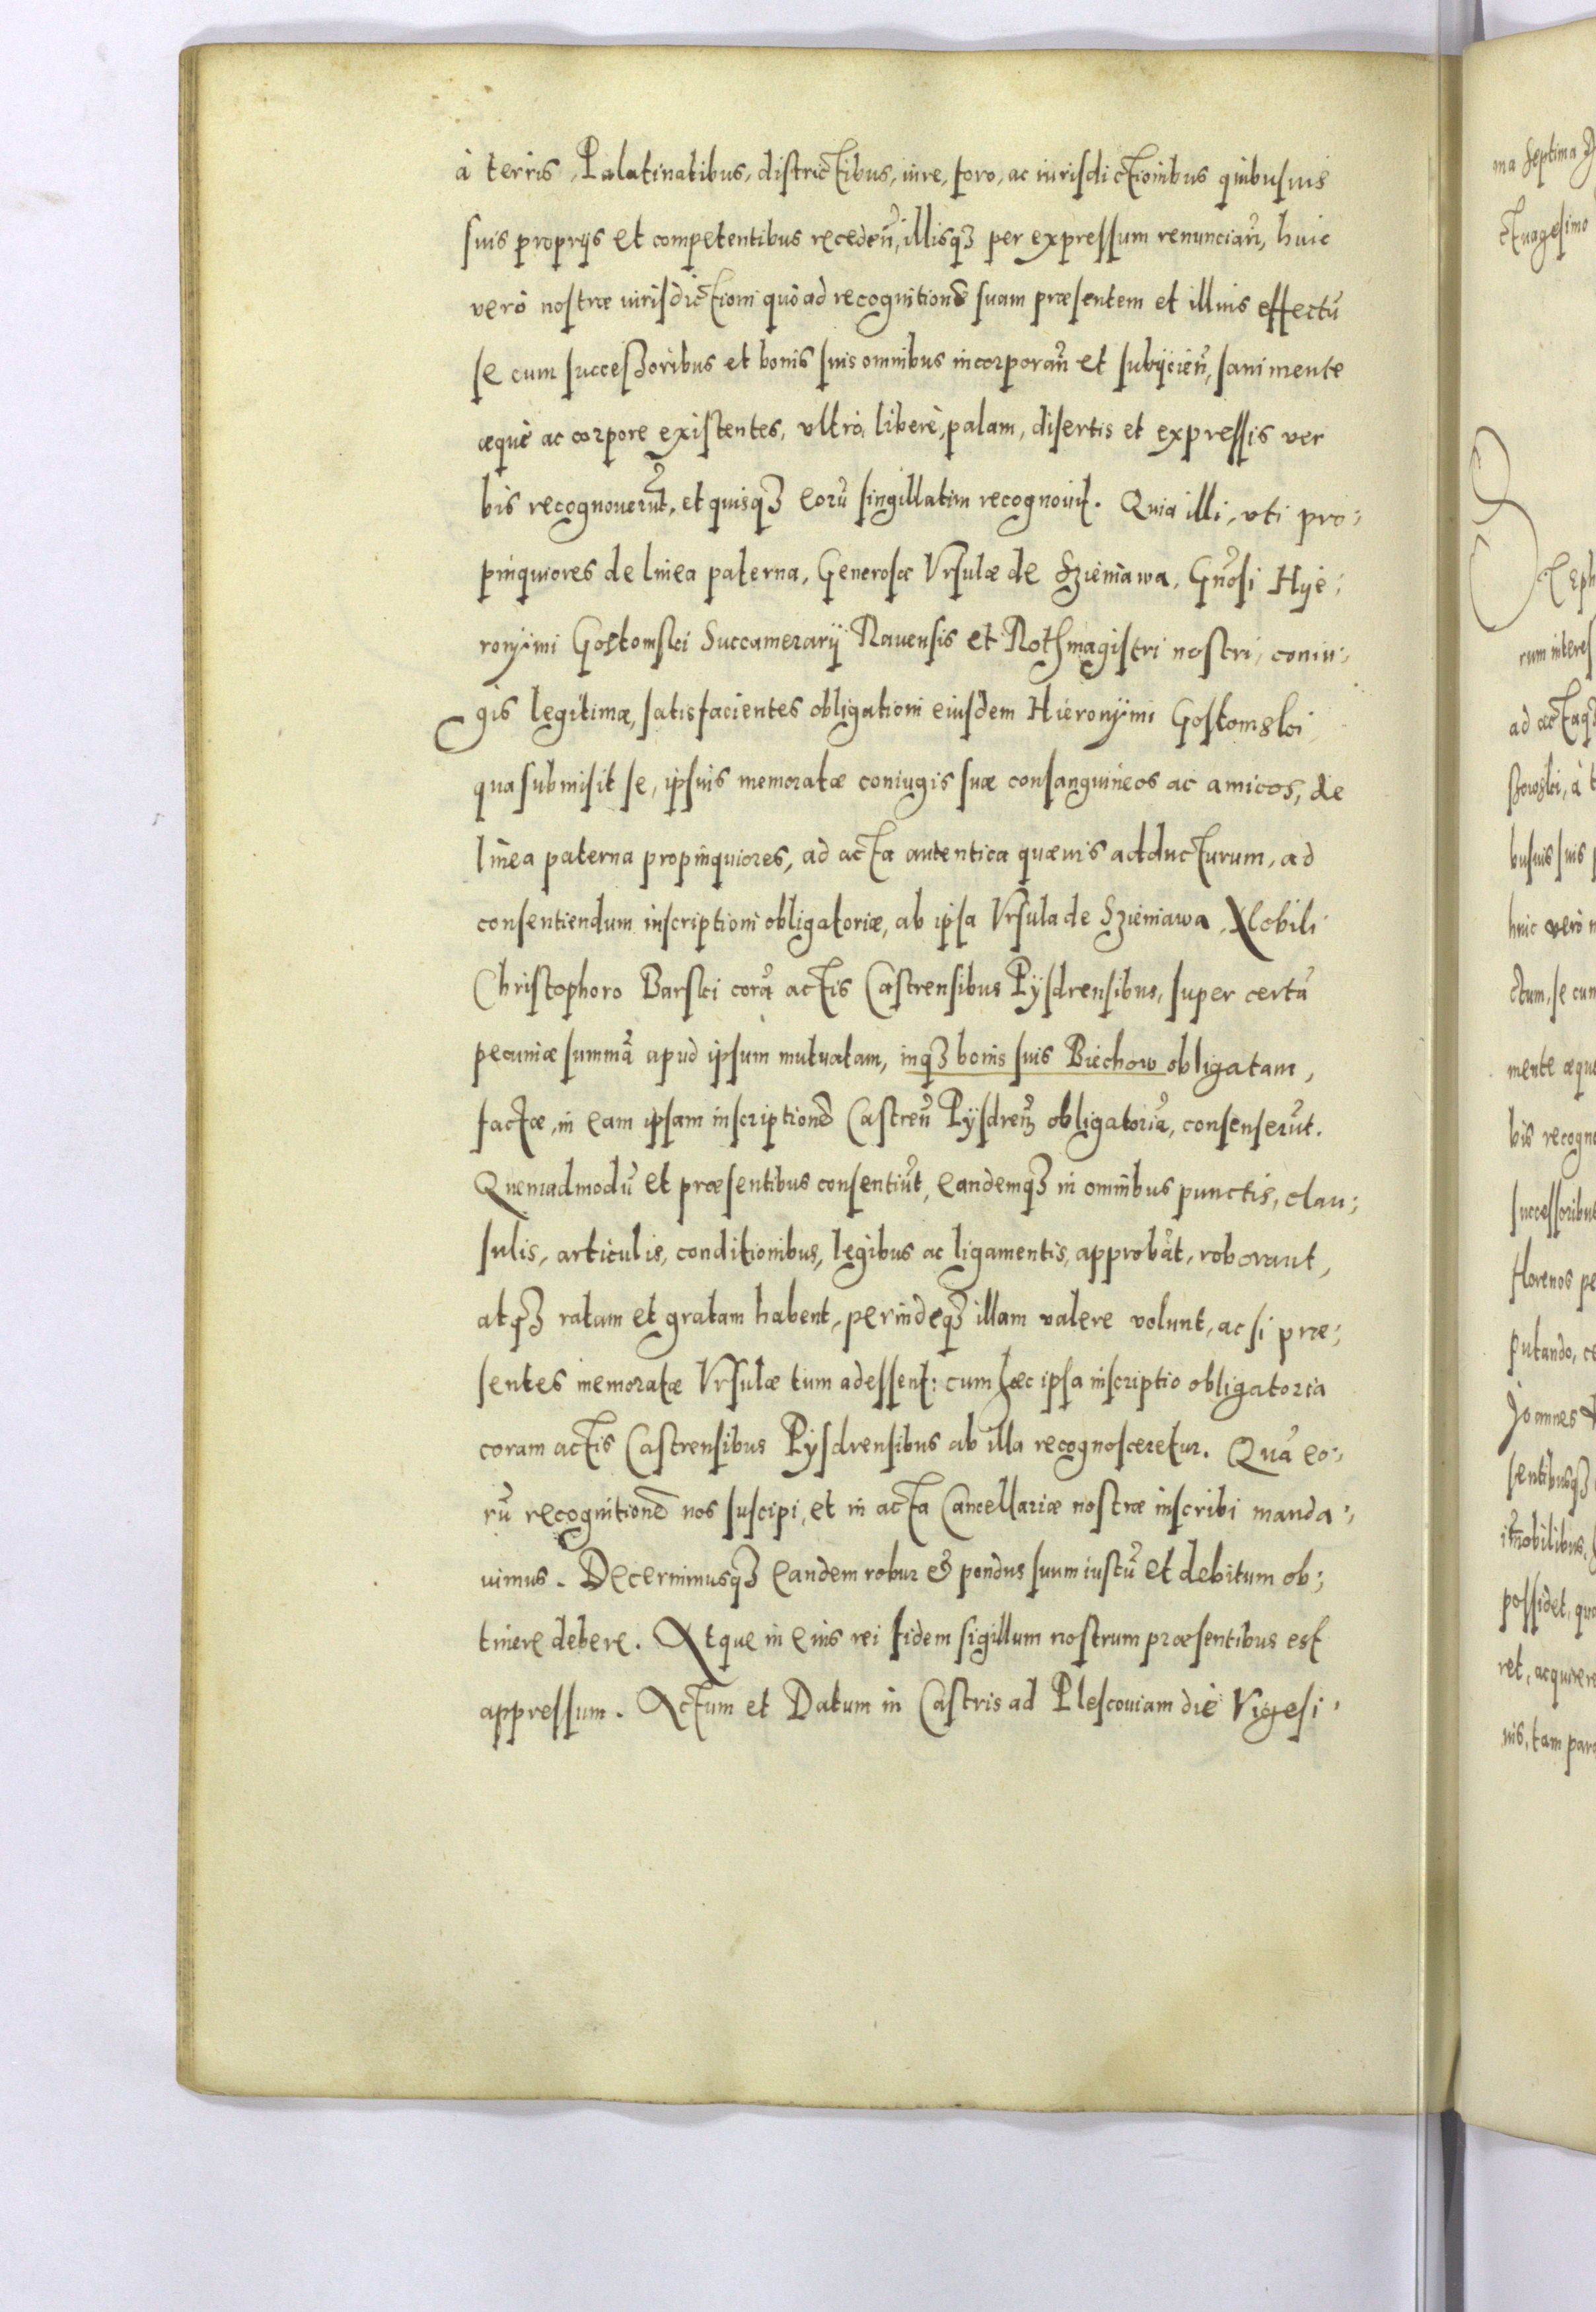 à terris, Palatinatibus, districtibus, iure, foro, ac iurisdictionibus quibusuis
suis proprijs et competentibus recedeñ, illisqꝫ per expressum renunciañ, huic
verò nostræ iurisdictioni quòad recognitionē suam præsentem et illius effectū
se cum successoribus et bonis suis omnibus incorporañ et subijcieñ, sani mente
æquè ac corpore existentes, vltrò, liberè, palam, disertis et expressis ver
bis recognouerūt, et quisqꝫ eorū singillatim recognouit. Quia illi, vti pro:
pinquiores de linea paterna, Generosæ Vrsulæ de Szieniawa, Gñosi Hye:
ronÿmi Gostomski Succamerarij Rauensis et Rothmagistri nostri, coniu:
gis legitimæ, satisfacientes obligationi eiusdem Hieronÿmi Gostomski
qua submisit se, ipsius memoratæ coniugis suæ consanguineos ac amicos, de
linea paterna propinquiores, ad acta autentica quæuis adducturum, ad
consentiendum inscriptioni obligatoriæ, ab ipsa Vrsula de Szieniawa, Nobili
Christophoro Barski corā actis Castrensibus Pÿsdrensibus, super certā
pecuniæ summā apud ipsum mutuatam, inqꝫ bonis suis Biechow obligatam,
factæ, in eam ipsam inscriptionē Castreñ Pÿsdreñ obligatoriā, consenserūt.
Quemadmodū et præsentibus consentiūt, eandemqꝫ in omnibus punctis, clau:
sulis, articulis, conditionibus, legibus ac ligamentis, approbāt, roborant,
atqꝫ ratam et gratam habent, perindeqꝫ illam valere volunt, ac si præ:
sentes memoratæ Vrsulæ tum adessent: cum hæc ipsa inscriptio obligatoria
coram actis Castrensibus Pÿsdrensibus ab illa recognosceretur. Quā eo:
rū recognitionē nos suscipi, et in acta Cancellariæ nostræ inscribi manda:
uimus. Decernimusqꝫ eandem robur & pondus suum iustū et debitum ob:
tinere debere. Atque in eius rei fidem sigillum nostrum præsentibus est
appressum. Actum et Datum in Castris ad Plescouiam die Vigesi:
ma Septima
ctuagesimo
rum interes
ad actaqꝫ
busuis suis
huic verò n
ctum, se cum
mente æque
bis recogno
successoribus
florenos pe
putando, ce
Joannes
sentibusqꝫ
im̄obilibus,
possidet, qua
ret, acquirere
nis, tam para